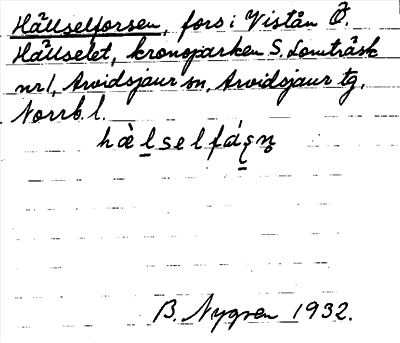 Hällselforsen, fors i Vistån Ö.
Hällselet, kronoparken S. Lomträsk
nr 1, Arvidsjaur sn, Arvidsjaur tg,
Norrb. l.
B. Nygren 1932.